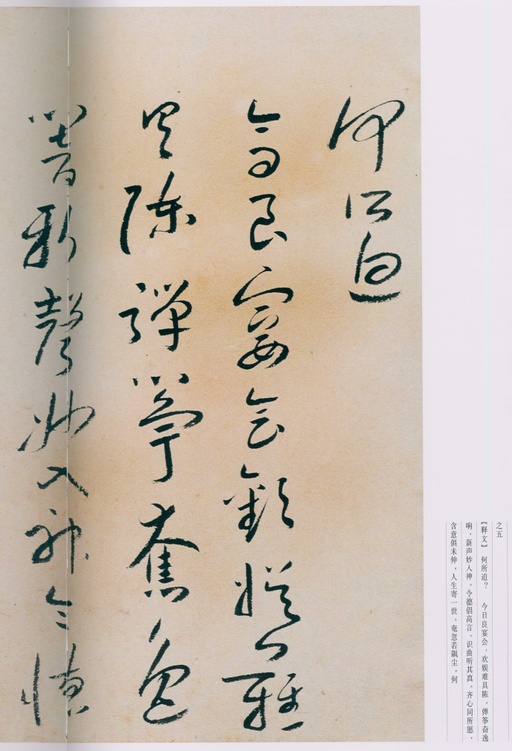 何所迫
今日良宴會歡娛難
具陳彈箏奮逸
響新聲妙入神令德
之五
【释文】 何所迫? 今日良宴会,欢娱难具陈。弹筝奋逸
响,新声妙入神。令德倡高言,识曲听其真。齐心同所愿,
含意俱未伸。人生寄一世,奄忽若飙尘。何